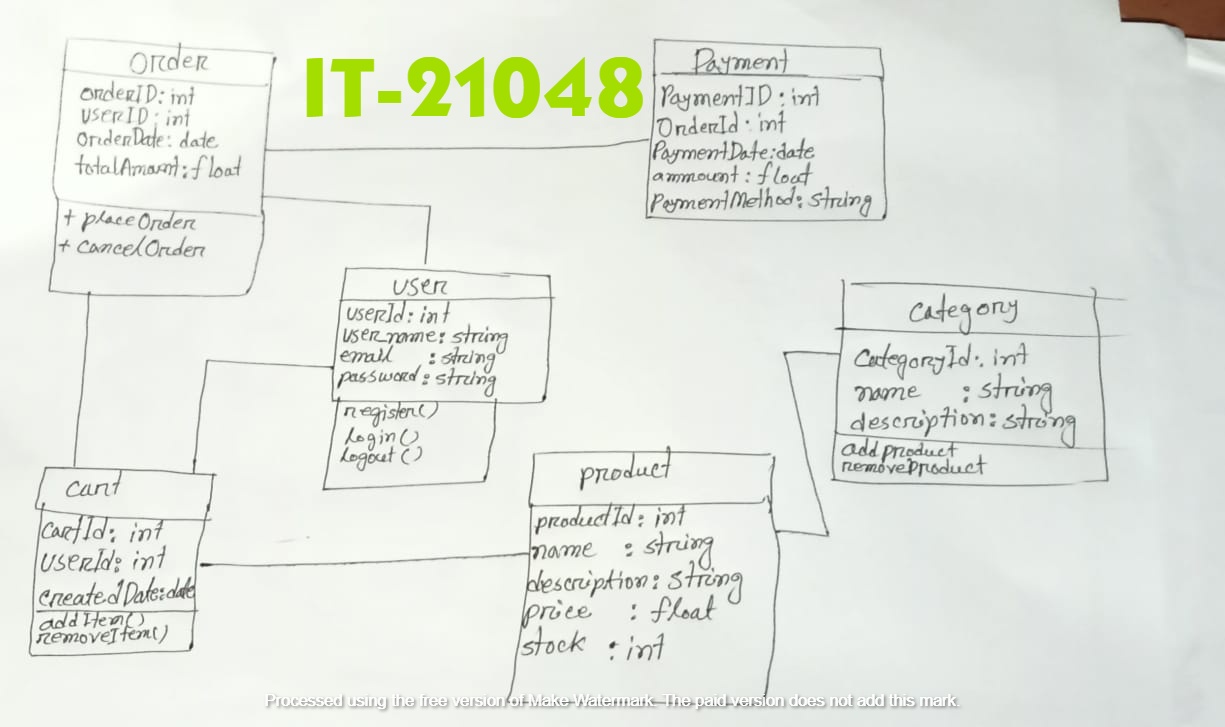 Order
orderID: int
userID: int
orderDate: date
totalAmount: float
+ placeOrder
+ cancelOrder
IT-21048
Payment
PaymentID: int
OrderId: int
PaymentDate:date
ammount: float
PaymentMethod: string
user
userId: int
username: string
email : string
password: string
register()
Login()
Logout()
Category
CategoryId: int
name : string
description: string
addproduct
removeProduct
cart
CartId: int
userId: int
createdDate: date
addItem()
removeItem()
product
productId: int
name : string
description: string
price : float
stock : int
Processed using the free version of Make Watermark. The paid version does not add this mark.